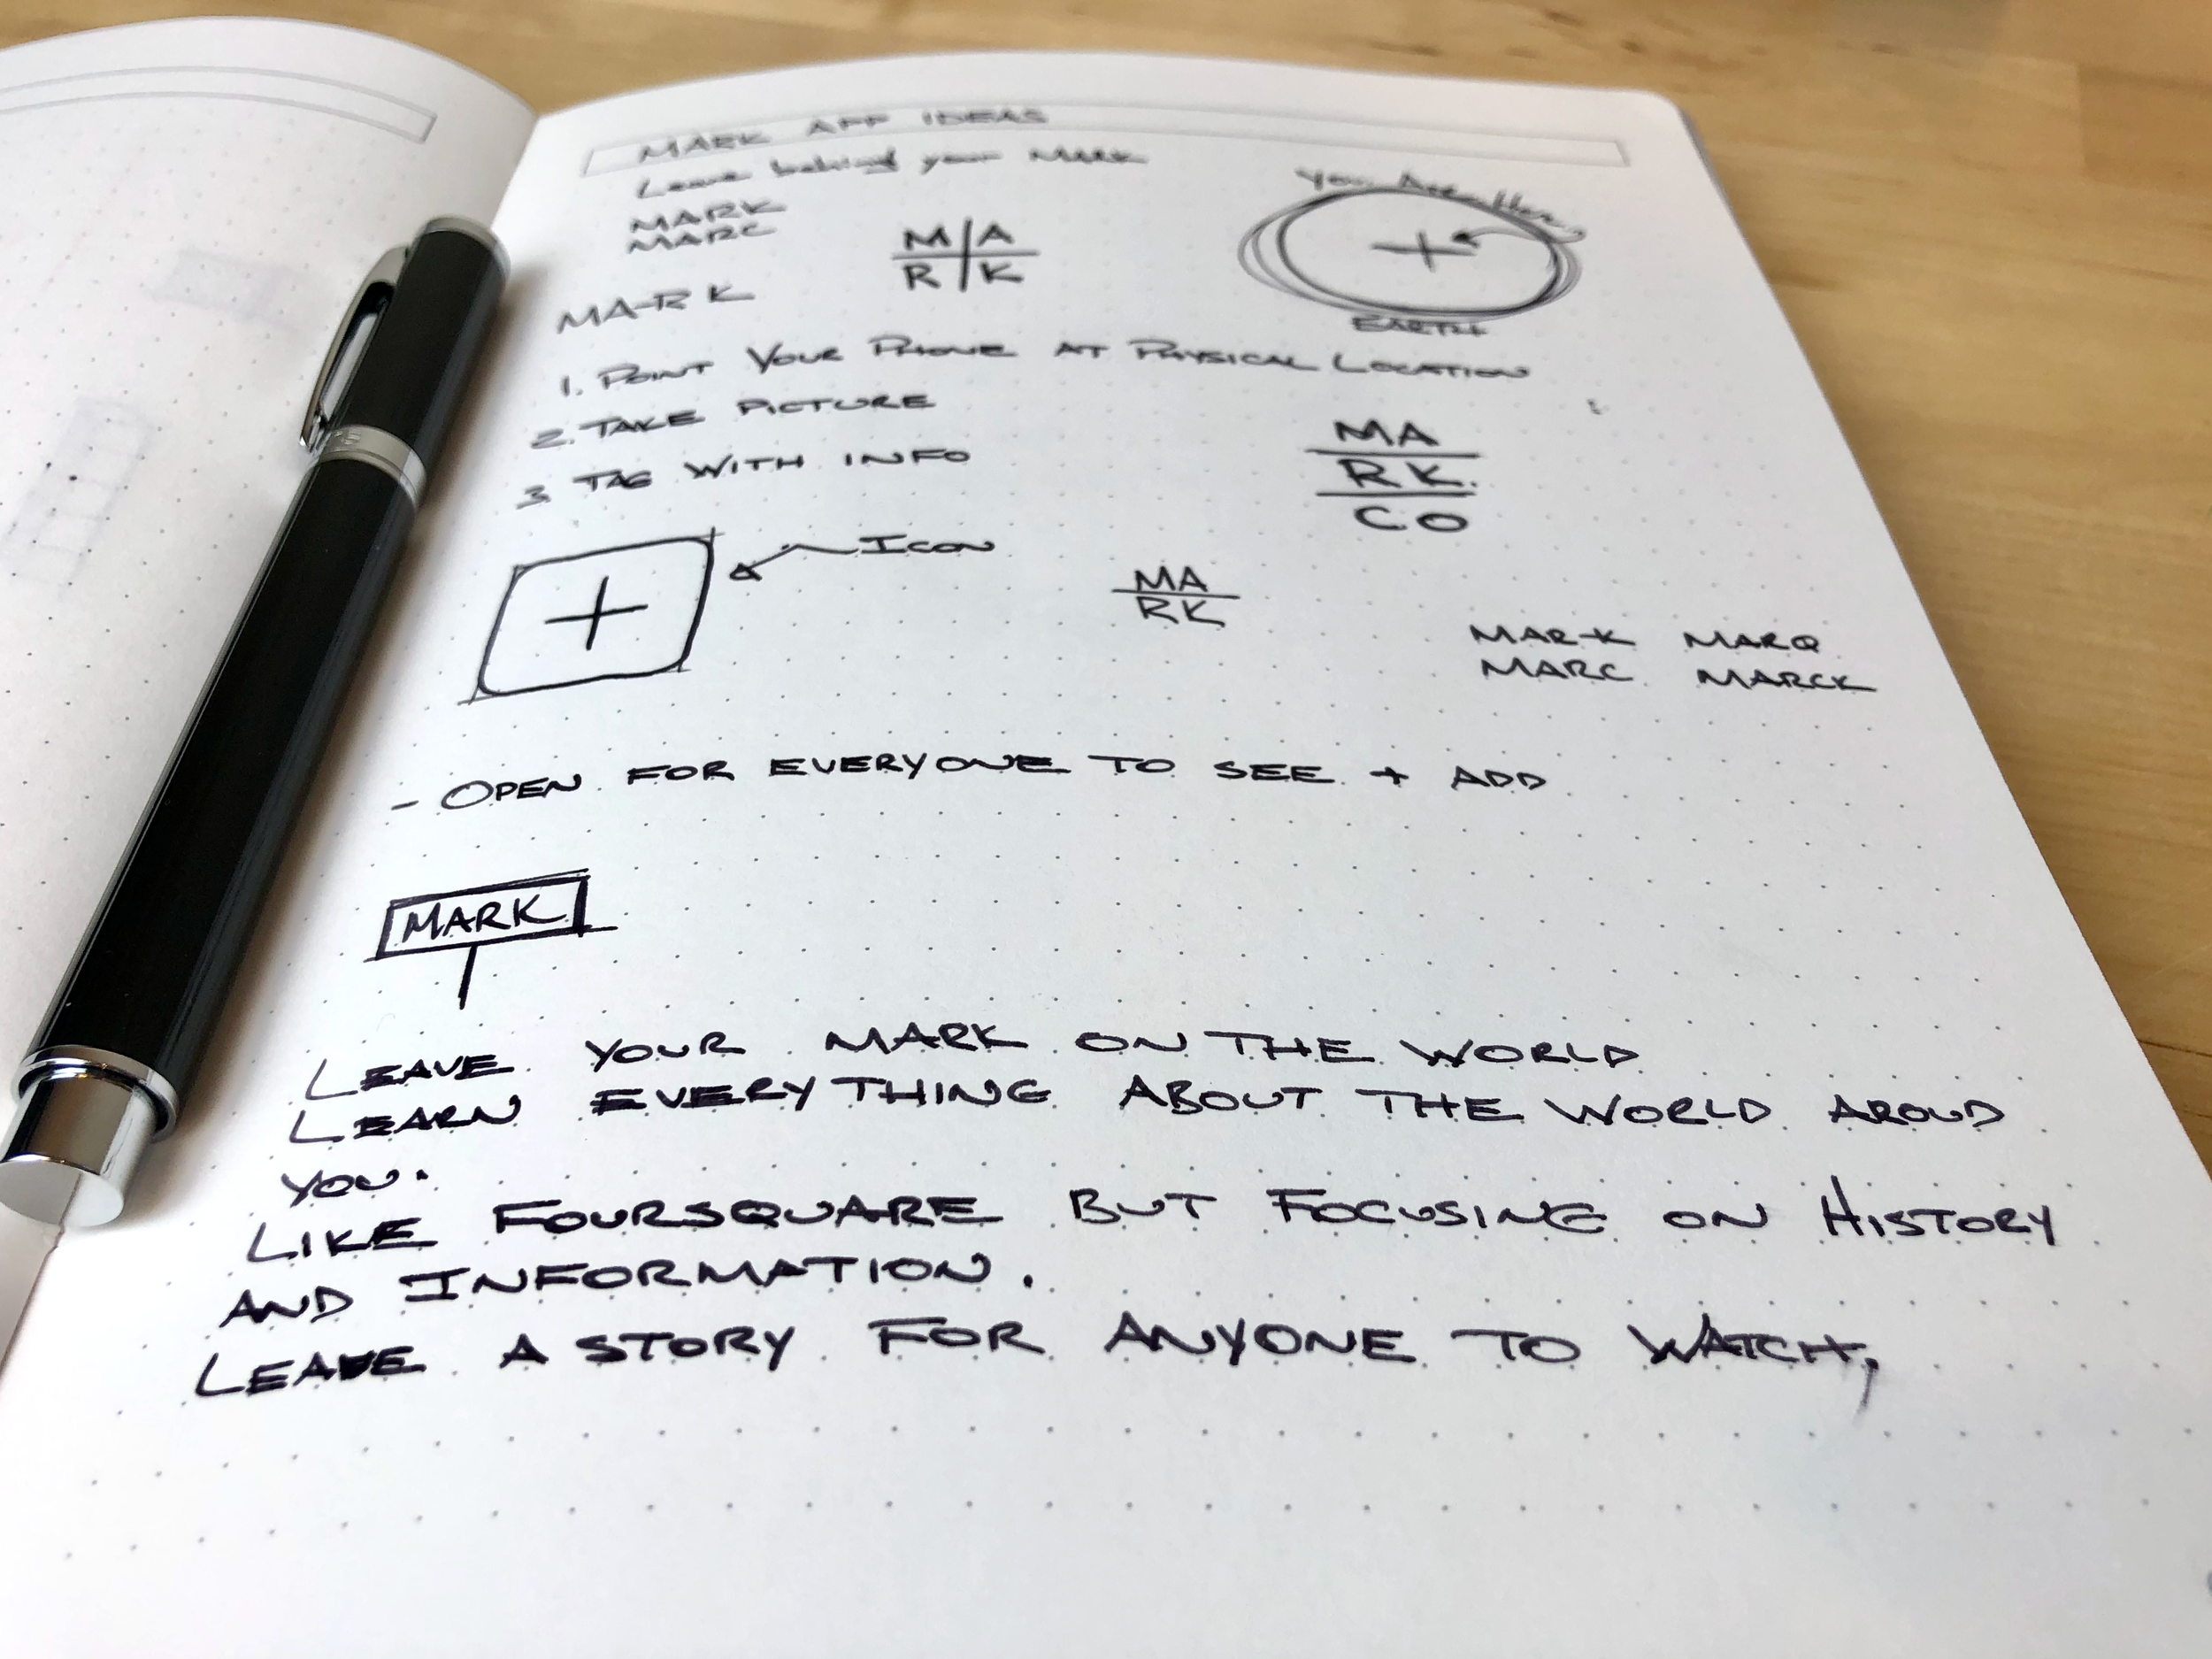 MARK APP IDEAS
Leave behind your MARK
MARK
MARC
M A
R K
You Are Here
EARTH
MARK
1. POINT YOUR PHONE AT PHYSICAL LOCATION
2. TAKE PICTURE
3. TAG WITH INFO
MA
RK
CO
ICON
MA
RK
MARK MARQ
MARC MARCK
- OPEN FOR EVERYONE TO SEE + ADD
MARK
LEAVE YOUR MARK ON THE WORLD
LEARN EVERYTHING ABOUT THE WORLD AROUD
YOU.
LIKE FOURSQUARE BUT FOCUSING ON HISTORY
AND INFORMATION.
LEAVE A STORY FOR ANYONE TO WATCH,